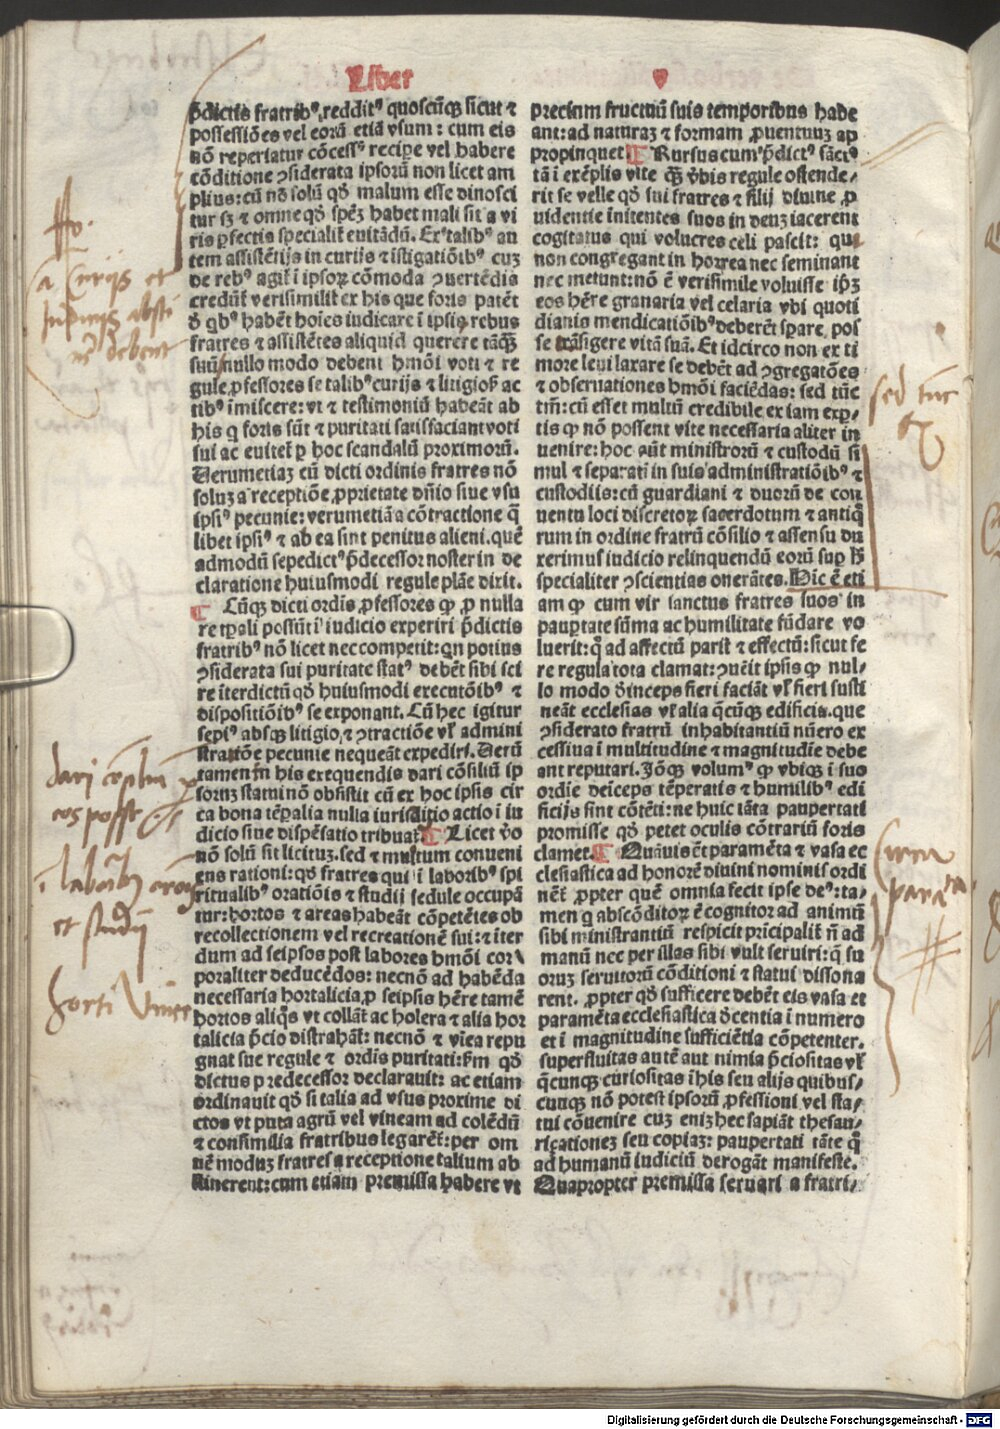 Liber
p̄dictis fratribꝰ redditꝰ quoscūqꝫ sicut ⁊
possessiōes vel eorū etiā vsum: cum eis
nō reperiatur cōcessꝰ recipe vel habere
cōditione ꝯsiderata ipsorū non licet am
plius: cū nō solū qđ malum esse dinosci
tur sꝫ ⁊ omne qđ spēꝫ habet mali sit a vi
ris ꝑfectis specialit̄ euitādū. Exꝰ talibꝰ au
tem assistētijs in curijs ⁊ istigatiōibꝰ cuꝫ
de rebꝰ agit̄ ī ipsoꝝ cōmoda ꝯuertēdis
credūt̄ verisimilit̄ ex his que foris patēt
đ qͥbꝰ habēt hoīes iudicare ī ipsis rebus
fratres ⁊ assistētes aliquid querere tāqꝫ
suū nullo modo debent hmōi voti ⁊ re
gule ꝓfessores se talibꝰ curijs ⁊ litigiosꝭ ac
tibꝰ īmiscere: vt ⁊ testimoniū habeāt ab
his q̄ foris sūt ⁊ puritati satisfaciant voti
sui ac euitet̄ ꝑ hoc scandalū proximorū.
Verumetiaꝫ cū dicti ordinis fratres nō
soluꝫ a receptiōe ꝓprietate dn̄io siue vsu
ipsiꝰ pecunie: verumetiā a cōtractione q̄
libet ipsiꝰ ⁊ ab ea sint penitus alieni. quē
admodū sepedictꝰ p̄decessor noster in de
claratione huiusmodi regule plāe dixit.
¶ Cūqꝫ dicti ordīs ꝓfessores ꝙ ꝓ nulla
re tꝑali possūt ī iudicio experiri p̄dictis
fratribꝰ nō licet nec competit: qn potius
ꝯsiderata sui puritate statꝰ debēt sibi sci
re īterdictū qđ huiusmodi executōibꝰ ⁊
dispositiōibꝰ se exponant. Cū hec igitur
sepiꝰ absqꝫ litigio, ⁊ ꝯtractiōe vł admini
stratiōe pecunie nequeāt expediri. Verū
tamen in his exequendis dari cōsiliū ip
soruꝫ statui nō obsistit cū ex hoc ipsis cir
ca bona tēpalia nulla iurisditio actio ī iu
dicio siue dispēsatio tribuat̄ ¶ Licet v̄o
nō solū sit licituꝫ. sed ⁊ multum conueni
ens rationi: qđ fratres qui ī laboribꝰ spi
ritualibꝰ oratiōis ⁊ studij sedule occupā
tur: hortos ⁊ areas habeāt cōpetētes ob
recollectionem vel recreationē sui: ⁊ īter
dum ad seipsos post labores hmōi cor
poraliter deducēdos: necnō ad habēda
necessaria hortalicia, ꝓ seipsis hēre tamē
hortos aliqͦs vt collāt̄ ac holera ⁊ alia hor
talicia p̄cio distrahāt̄: necnō ⁊ vīea repu
gnat sue regule ⁊ ordīs puritati: ẜm qđ
dictus predecessor declarauit: ac etiam
ordinauit qđ si talia ad vsus proxime di
ctos vt puta agrū vel vineam ad colēdū
⁊ consimilia fratribus legarēt̄: per om
nē moduꝫ fratres a receptione talium ab
stinerent: cum etiam premissa habere vt
precium fructuū suis temporibus habe
ant: ad naturaꝫ ⁊ formam ꝓuentuuꝫ ap
propinquet ¶ Rursus cum p̄dictꝰ sāctꝰ
tā ī exēplis vite qꝫ v̄bis regule ostende⸗
rit se velle qđ sui fratres ⁊ filij diuine ꝓ
uidentie īnitentes suos in deuꝫ iacerent
cogitatus qui volucres celi pascit: que
non congregant in horrea nec seminant
nec metunt: nō ē verisimile voluisse ip̄ꝫ
eos hēre granaria vel celaria vbi quoti
dianis mendicatiōibꝰ deberēt sꝑare, pos
se trāsigere vitā suā. Et idcirco non ex ti
more leui laxare se debēt ad ꝯgregatōes
⁊ obseruationes hmōi faciēdas: sed tūc
tm̄: cū esset multū credibile ex iam exꝑ⸗
tis ꝙ nō possent vite necessaria aliter in
uenire: hoc aūt ministrorū ⁊ custodū si
mul ⁊ separatī in suis administratiōibꝰ ⁊
custodiis: cū guardiani ⁊ duorū de con
uentu loci discretoꝝ sacerdotum ⁊ antiq̄
rum in ordine fratrū cōsilio ⁊ assensu du
xerimus iudicio relinquendū eorū suꝑ h̄
specialiter ꝯscientias onerātes. Hic ē eti
am ꝙ cum vir sanctus fratres suos in
pauꝑtate sūma ac humilitate fūdare vo
luerit: q̄ ad affectū parit̄ ⁊ effectū: sicut fe
re regula tota clamat: ꝯuēit ipsis ꝙ nul⸗
lo modo đinceps fieri faciāt vł fieri susti
neāt ecclesias vł alia q̄cūqꝫ edificia. que
ꝯsiderato fratrū inhabitantiū nūero ex
cessiua ī multitudine ⁊ magnitudīe debe
ant reputari. Jōqꝫ volumꝰ ꝙ vbiqꝫ ī suo
ordīe deīceps tēperatis ⁊ humilibꝰ edi
ficijs sint cōtēti: ne huic tāta paupertati
promisse qđ petet oculis cōtrariū foris
clamet ¶ Quāuis et̄ paramēta ⁊ vasa ec
clesiastica ad honorē diuini nominis ordi
nēt̄ ꝓpter quē omnia fecit ipse deꝰ: ta⸗
men q̄ abscōditoꝝ ē cognitor ad animū
sibi ministrantiū respicit prīcipalit̄ n̄ ad
manū nec per illas sibi vult seruiri: q̄ su
oruꝫ seruitorū cōditioni ⁊ statui dissona
rent. ꝓpter qđ sufficere debēt eis vasa et
paramēta ecclesiastica đcentia ī numero
et ī magnitudine sufficiētia cōpetenter.
superfluitas autē aut nimia p̄ciositas vł
q̄cunqꝫ curiositas īhis seu alijs quibus⸗
cunqꝫ nō potest ipsorū ꝓfessioni vel sta⸗
tui cōuenire cuꝫ eniꝫ hec sapiāt thesau⸗
ricationeꝫ seu copiaꝫ: paupertati tāte q̄
ad humanū iudiciū derogāt manifeste.
Quapropter premissa seruari a fratri⸗
a Curijs et
Judicijs absti
nē debent
dari consiliū
eos posset
ī laboribꝰ oronꝭ
et studij
horti Vinee
sed tūc
Circa
parata
Digitalisierung gefördert durch die Deutsche Forschungsgemeinschaft - DFG